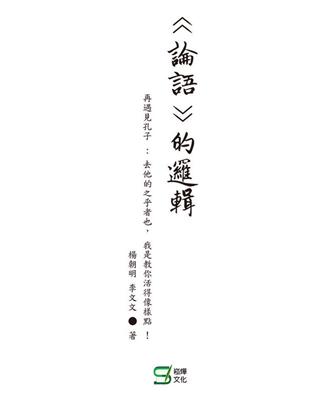 《論語》的邏輯
再遇見孔子：去他的之乎者也，我是教你活得像樣點！
楊朝明 李文文●著
崧燁
文化